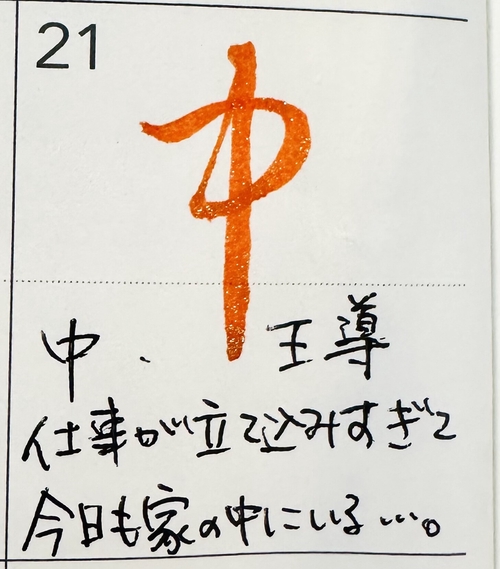 21
中
中・王導
仕事が立て込みすぎて
今日も家の中にいる…。